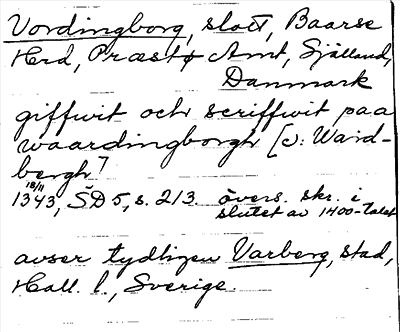 Vordingborg, slott, Baarse
Hrd, Præstø Amt, Sjålland,
Danmark
giffwit och scriffwit paa
waardingborgh [ɔ: Ward-
bergh]
18/11 1343, SD 5, s. 213. övers. skr. i
slutet av 1400-talet
avser tydligen Varberg, stad,
Hall. l., Sverige.